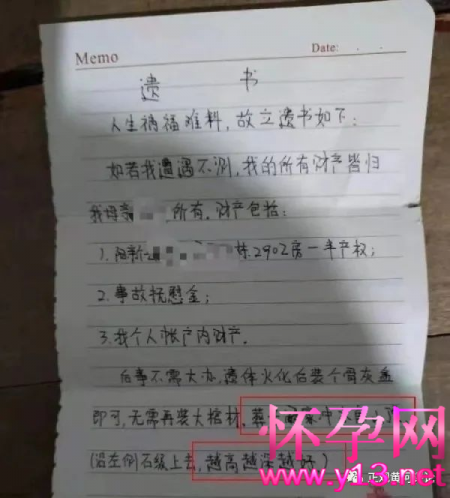 Memo Date:
遗 书
人生祸福难料,故立遗书如下:
如若我遭遇不测,我的所有财产皆归
我母亲 所有,财产包括:
1.阳新 栋2902房一半产权;
2.事故抚慰金;
3.我个人帐户内财产.
后事不需大办,遗体火化后装个骨灰盒
即可,无需再装大棺材,葬
(沿左侧石级上去,越高越深越好)
怀孕网
www.y13.net